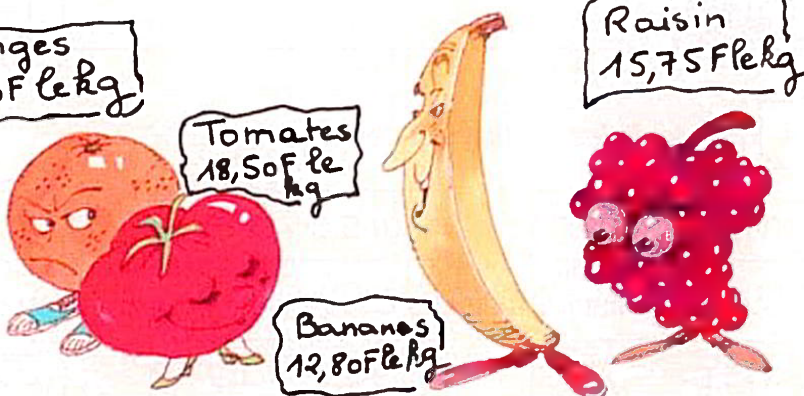 le kg
Tomates
18,50F le
kg
Bananes
12,80F le kg
Raisin
15,75F le kg